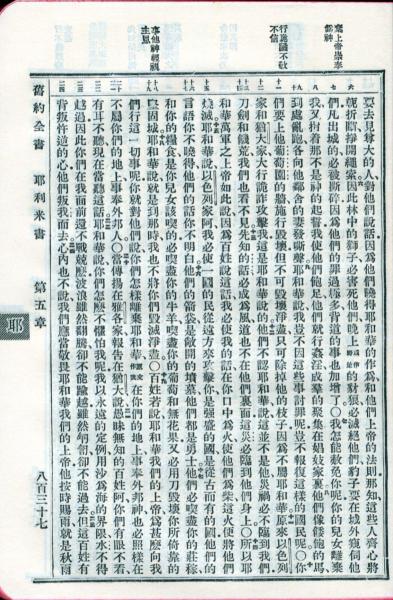 棄上帝崇奉
假神
行詭譎不敬
不信
事他神輕視
主恩
要去見尊大的人對他們說話因為他們曉得耶和華的作為他們上帝的法則那知這些人齊心將
軛折斷掙開繩索因此林中的獅子必害死他們晚上的豺狼必滅絕他們豹子要在城外窺伺他
們凡出城的必被撕碎因為他們的罪過極多背道的事也加增了〇我怎能赦免你呢你的兒女離棄
我又指着那不是神的起誓我使他們飽足他們就行姦淫成羣的聚集在娼妓家裏他們像餧飽的馬
到處亂跑各向他鄰舍的妻發嘶聲耶和華說我豈不因這些事討罪呢豈不報復這樣的國民呢〇你
們要上他葡萄園的牆施行毀壞但不可毀壞淨盡只可除掉他的枝子因為不屬耶和華原來以色列
家和猶大家大行詭詐攻擊我這是耶和華說的他們不認耶和華說這並不是他災禍必不臨到我們
刀劍和饑荒我們也看不見先知的話必成為風道也不在他們裏面這災必臨到他們身上〇所以耶
和華萬軍之上帝如此說因為百姓說這話我必使我的話在你口中為火使他們為柴這火便將他們
燒滅耶和華說以色列家阿我必使一國的民從遠方來攻擊你是強盛的國是從古而有的國他們的
言語你不曉得他們的話你不明白他們的箭袋是敞開的墳墓他們都是勇士他們必喫盡你的莊稼
和你的糧食是你兒女該喫的必喫盡你的牛羊喫盡你的葡萄和無花果又必用刀毀壞你所倚靠的
堅固城耶和華說就是到那時我也不將你們毀滅淨盡〇百姓若說耶和華我們的上帝為甚麼向我
們行這一切事呢你就對他們說你們怎樣離棄耶和華在你們的地上事奉外邦神也必照樣在
不屬你們的地上事奉外邦人〇當傳揚在雅各家報告在猶大說愚昧無知的百姓阿你們有眼不看
有耳不聽現在當聽這話耶和華說你們怎麼不懼怕我呢我以永遠的定例用沙為海的界限水不得
越過因此你們在我面前還不戰兢麼波浪雖然翻騰卻不能踰越雖然匉訇卻不能過去但這百姓有
背叛忤逆的心他們叛我而去心內也不說我們應當敬畏耶和華我們的上帝他按時賜雨就是秋雨
舊約全書 耶利米書 第五章 八百三十七
耶